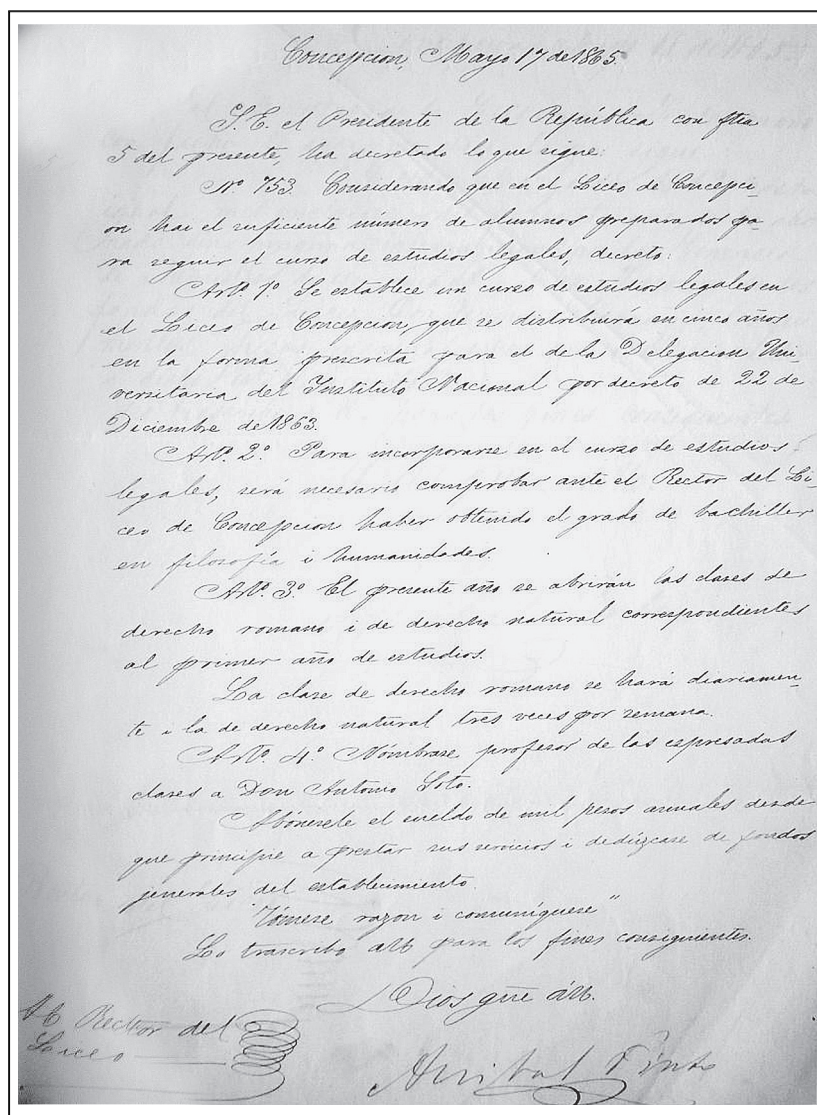 Concepcion, Mayo 17 de 1865.
S. E. el Presidente de la República con fha
5 del presente, ha decretado lo que sigue:
Nº 753. Considerando que en el Liceo de Concepci-
on hai el suficiente número de alumnos preparados pa-
ra seguir el curso de estudios legales, decreto:
Artº. 1º. Se establece un curso de estudios legales en
el Liceo de Concepcion, que se distribuirá en cinco años
en la forma prescrita para el de la Delegacion Uni-
versitaria del Instituto Nacional por decreto de 22 de
Diciembre de 1863.
Artº. 2º. Para incorporarse en el curso de estudios
legales, será necesario comprobar ante el Rector del Li-
ceo de Concepcion haber obtenido el grado de bachiller
en filosofía i humanidades.
Artº. 3º. El presente año se abrirán las clases de
derecho romano i de derecho natural correspondientes
al primer año de estudios.
La clase de derecho romano se hará diariamen-
te i la de derecho natural tres veces por semana.
Artº. 4º. Nómbrase profesor de las espresadas
clases a Don Antonio Soto.
Abónesele el sueldo de mil pesos anuales desde
que principie a prestar sus servicios i dedúzcase de fondos
jenerales del establecimiento.
Tómese razon i comuníquese"
Lo trascribo a para los fines consiguientes.
Dios gue á
Rector del
Liceo
Anibal Pinto